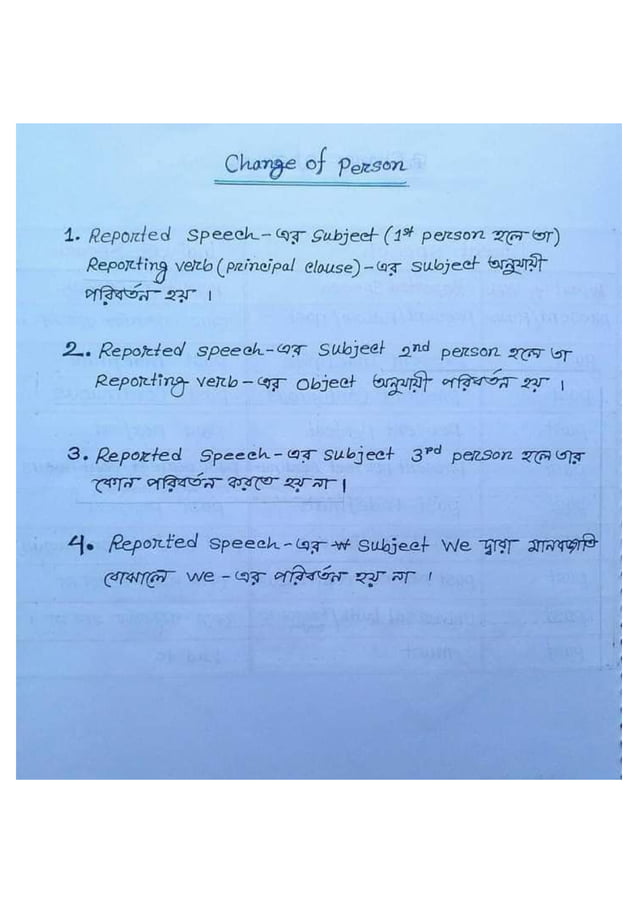 Change of Person
1. Reported speech-এর Subject (1st person হলে তা)
Reporting verb (principal clause)-এর subject অনুযায়ী
পরিবর্তন হয় ।
2. Reported speech-এর Subject 2nd person হলে তা
Reporting verb-এর Object অনুযায়ী পরিবর্তন হয় ।
3. Reported Speech-এর subject 3rd person হলে তার
কোন পরিবর্তন করতে হয় না ।
4. Reported speech-এর Subject We দ্বারা মানবজাতি
বোঝালে we-এর পরিবর্তন হয় না ।